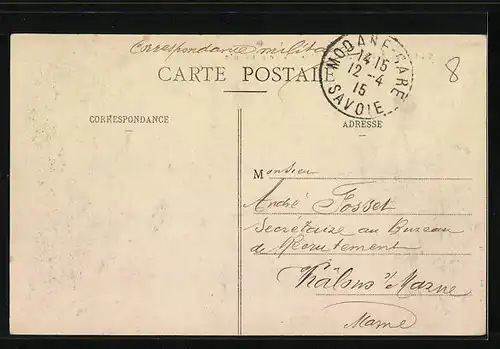 Correspondance milita
CARTE POSTALE
MODANE-GARE
14 15
12 - 4
15
SAVOIE
8
CORRESPONDANCE
ADRESSE
Monsieur
André Fosset
Secrétaire au Bureau
de Recrutement
Châlons s/ Marne
Marne